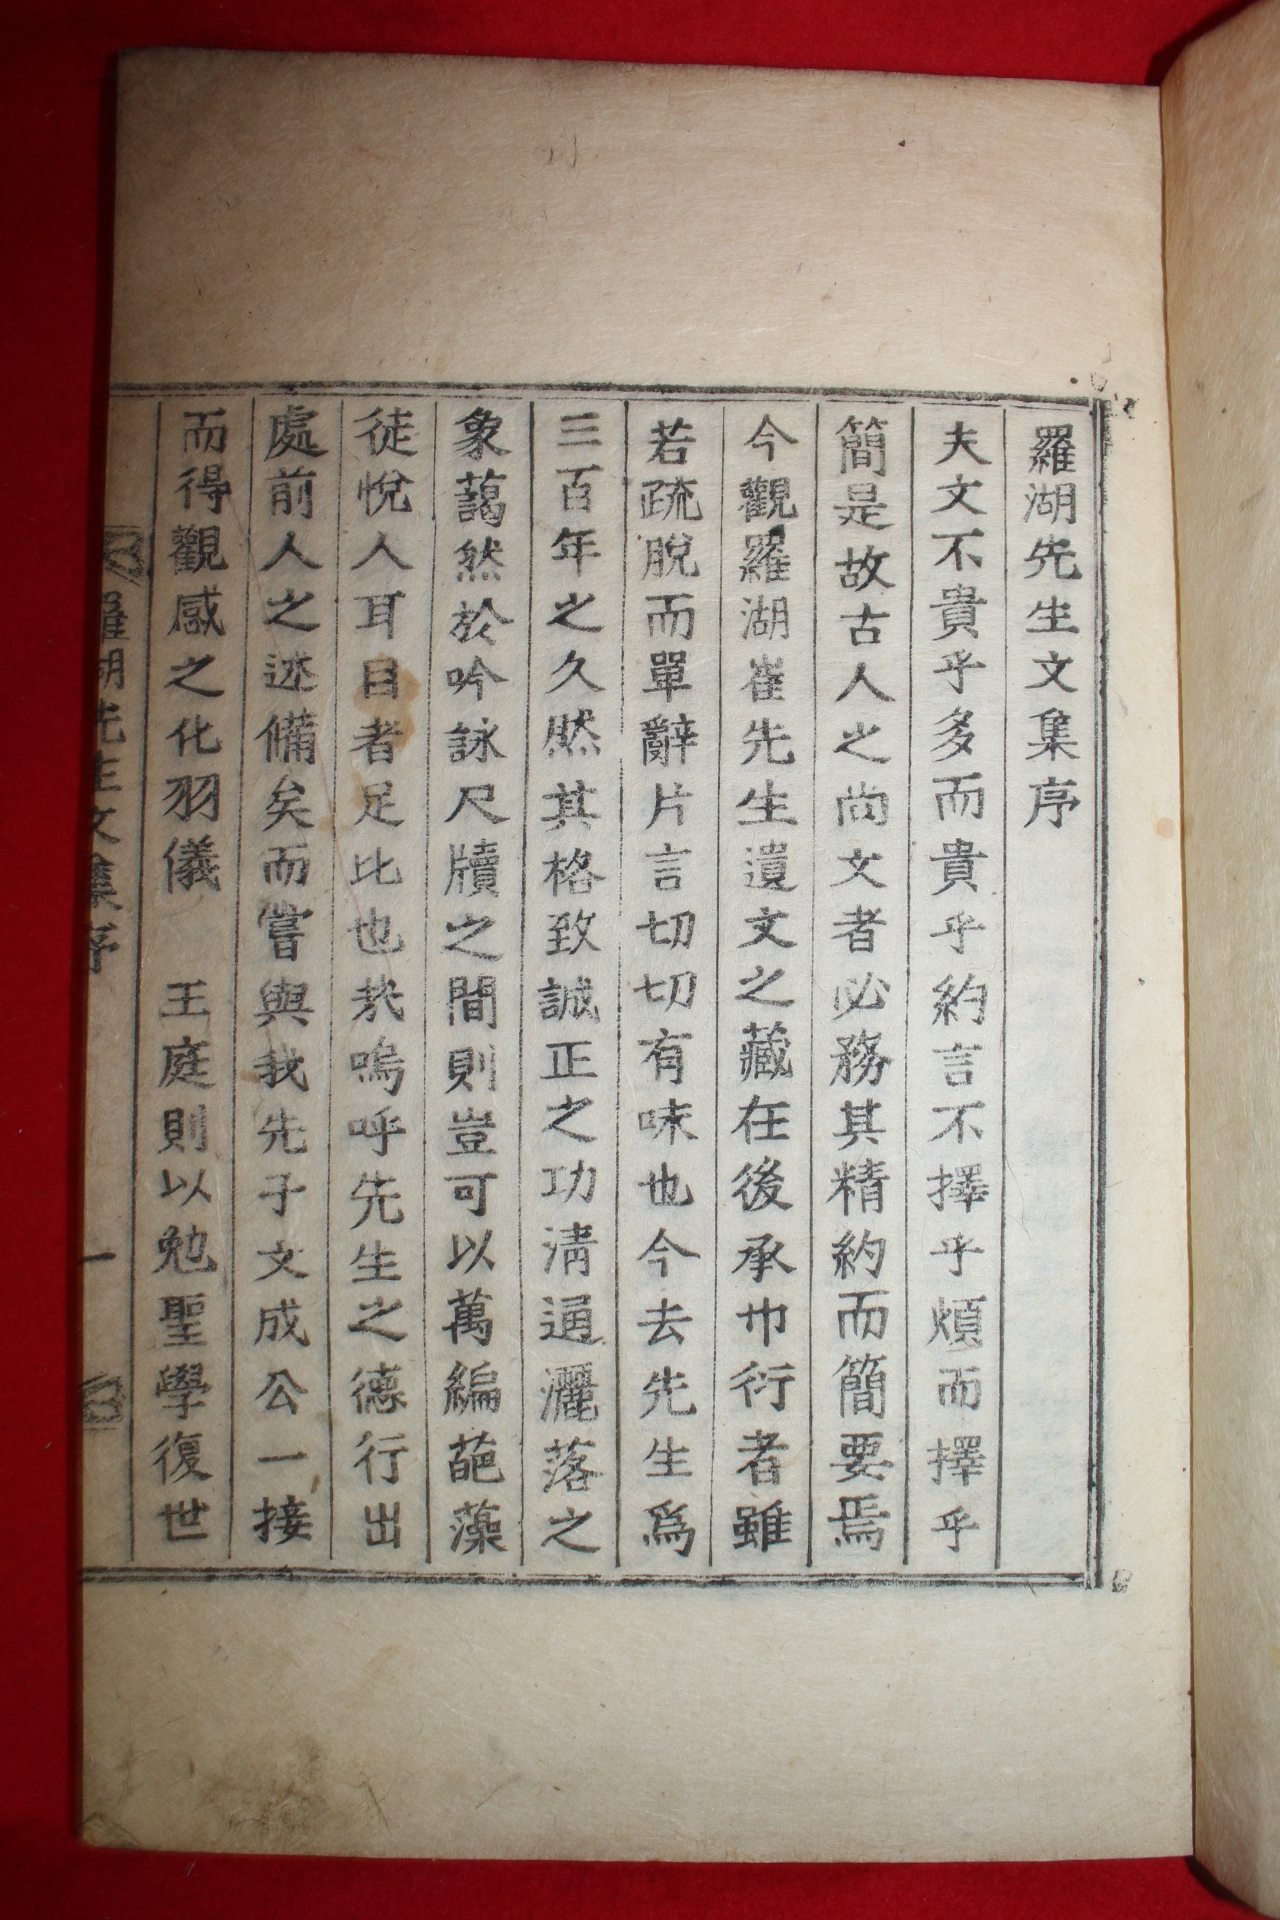 羅湖先生文集序
夫文不貴乎多而貴乎約言不擇乎煩而擇乎
簡是故古人之尚文者必務其精約而簡要焉
今觀羅湖崔先生遺文之藏在後承巾衍者雖
若疏脫而單辭片言切切有味也今去先生爲
三百年之久然其格致誠正之功淸通灑落之
象藹然於吟詠尺牘之間則豈可以萬編葩藻
徒悅人耳目者足比也㢤嗚呼先生之德行出
處前人之述備矣而嘗與我先子文成公一接
而得觀感之化羽儀　王庭則以勉聖學復世
羅湖先生文集序
一